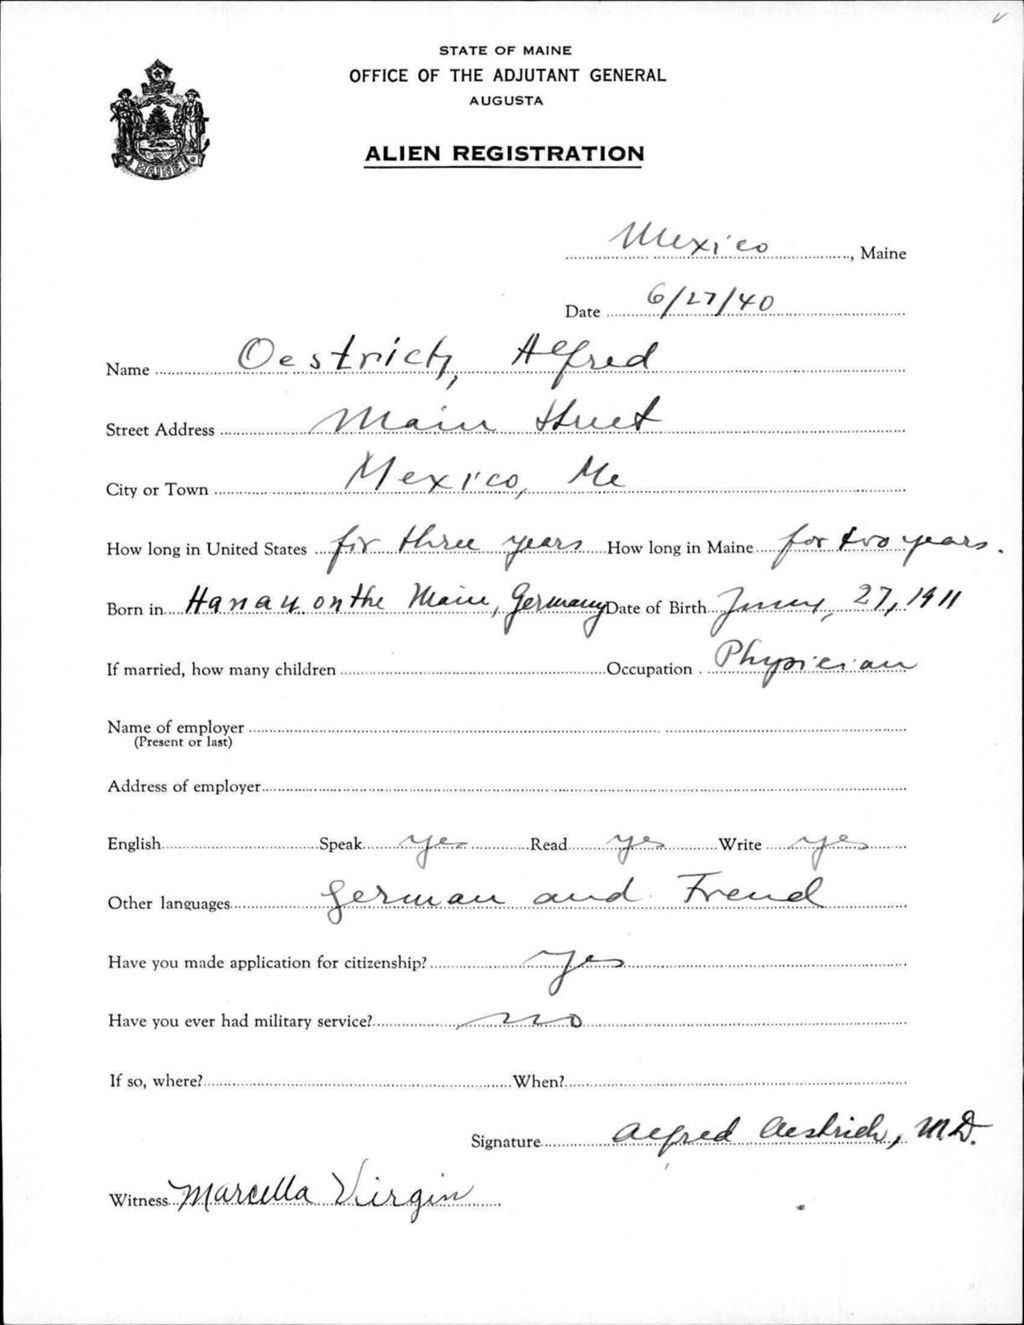 STATE OF MAINE
OFFICE OF THE ADJUTANT GENERAL
AUGUSTA
ALIEN REGISTRATION
MAINE
Mexico, Maine
Date 6/27/40
Name Oestrich, Alfred
Street Address Main Street
City or Town Mexico, Me
How long in United States for three years How long in Maine for two years.
Born in Hanau on the Main, Germany Date of Birth 27, 1911
If married, how many children Occupation Physician
Name of employer
(Present or last)
Address of employer
English Speak yes Read yes Write yes
Other languages German and French
Have you made application for citizenship? Yes
Have you ever had military service? no
If so, where? When?
Signature Alfred Oestrich, M.D.
Witness Marcella Virgin